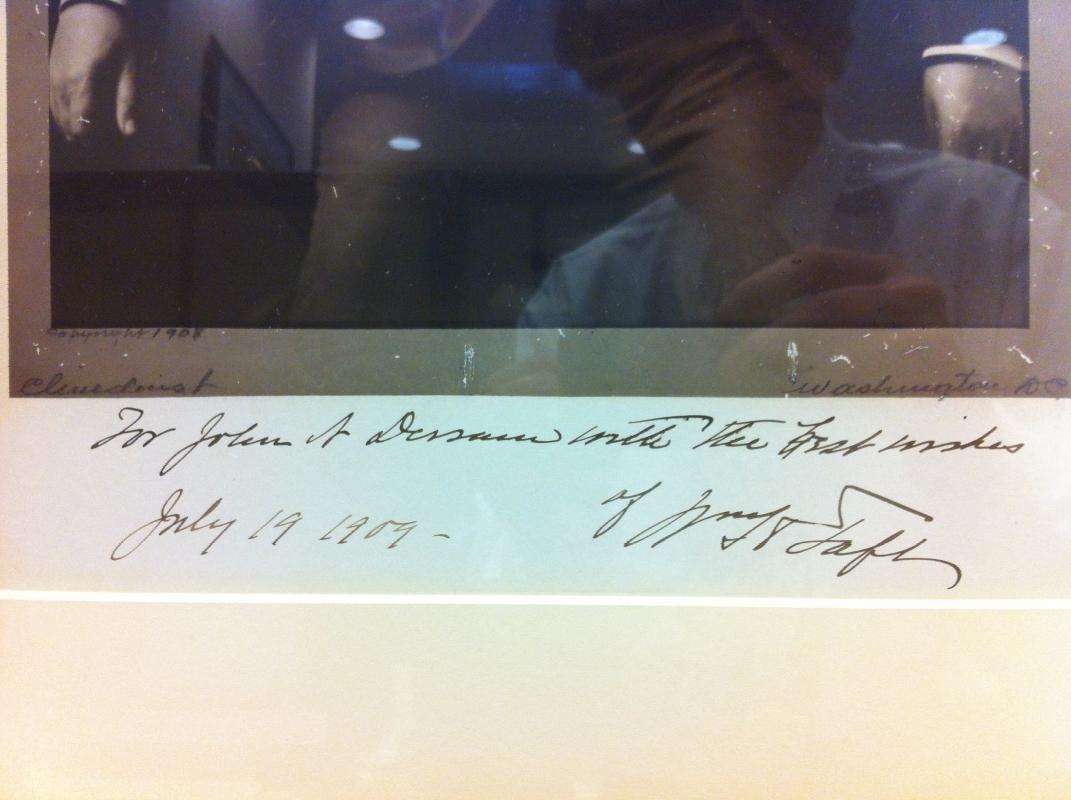 Copyright 1908
Clinedinst
Washington DC
For John A with the best wishes
July 19 1909 -
of Wm H Taft